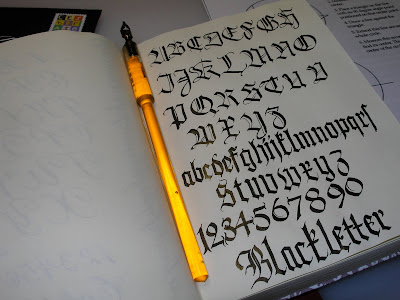 ABCDEFGH
IJKLMNO
PQRSTUV
WXYZ
abcdefghijklmnopqrs
stuvwxyz
1234567890
Blackletter